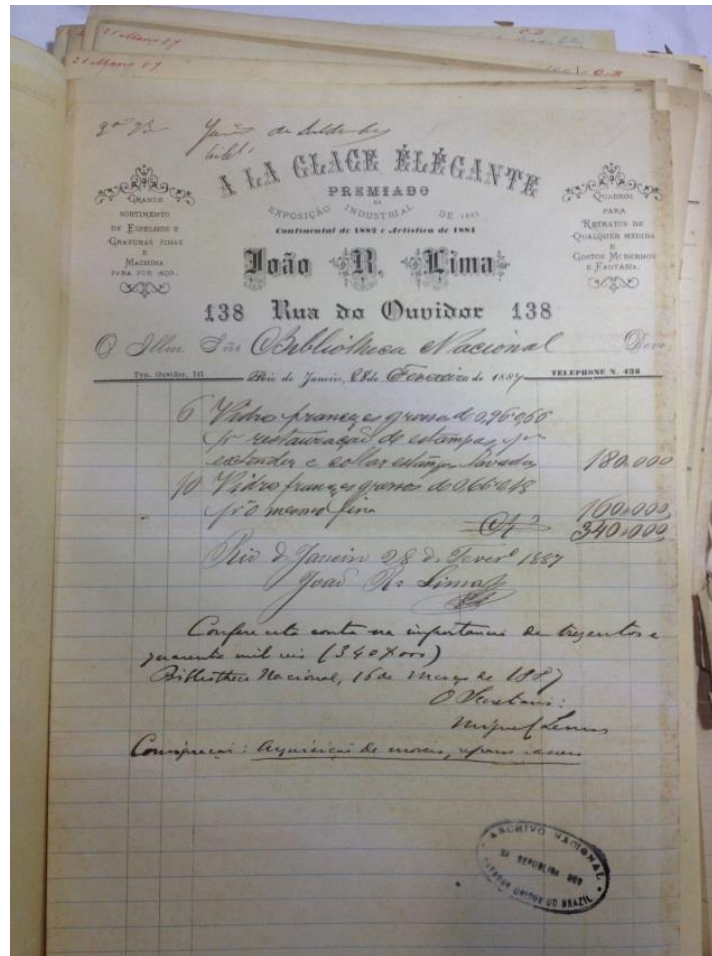 21 Março 87
C. B
21 Março 87
C. B
A LA GLACE ÉLÉGANTE
PREMIADO
NA
EXPOSIÇÃO INDUSTRIAL DE 1881
Continental de 1882 e Artistica de 1884
GRANDE
SORTIMENTO
DE ESPELHOS E
GRAVURAS FINAS
E
MACHINA
PARA POR AÇO.
QUADROS
PARA
RETRATOS DE
QUALQUER MEDIDA
E
GOSTOS MODERNOS
E FANTASIA.
João R. Lima
138 Rua do Ouvidor 138
O Illm. Snr. Bibliotheca Nacional Deve
Typ. Ouvidor, 141 Rio de Janeiro, 28 de Fevereiro de 1887 TELEPHONE N. 436
6 Vidros francezes grossos de 0,96 0,66
pr restauração de estampas, por
extender e collar estampas lavadas 180.000
10 Vidros francezes grossos de 0,66 0,48
pr o mesmo fim 160.000
340.000
Rio de Janeiro 28 de Feverº 1887
João R. Lima
Confere esta conta na importancia de trezentos e
quarenta mil reis (340$000)
Bibliotheca Nacional, 16 de Março de 1887
O Secretario:
Miguel Lemos
Consignação: Acquisição de moveis, reparos
ARCHIVO NACIONAL
DA REPUBLICA DOS
ESTADOS UNIDOS DO BRAZIL